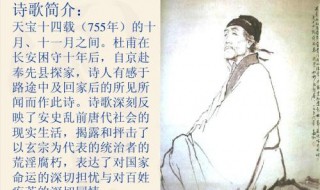 诗歌简介：
天宝十四载（755年）的十
月、十一月之间。杜甫在
长安困守十年后，自京赴
奉先县探家，诗人有感于
路途中及回家后的所见所
闻而作此诗。诗歌深刻反
映了安史乱前唐代社会的
现实生活，揭露和抨击了
以玄宗为代表的统治者的
荒淫腐朽，表达了对国家
命运的深切担忧与对百姓